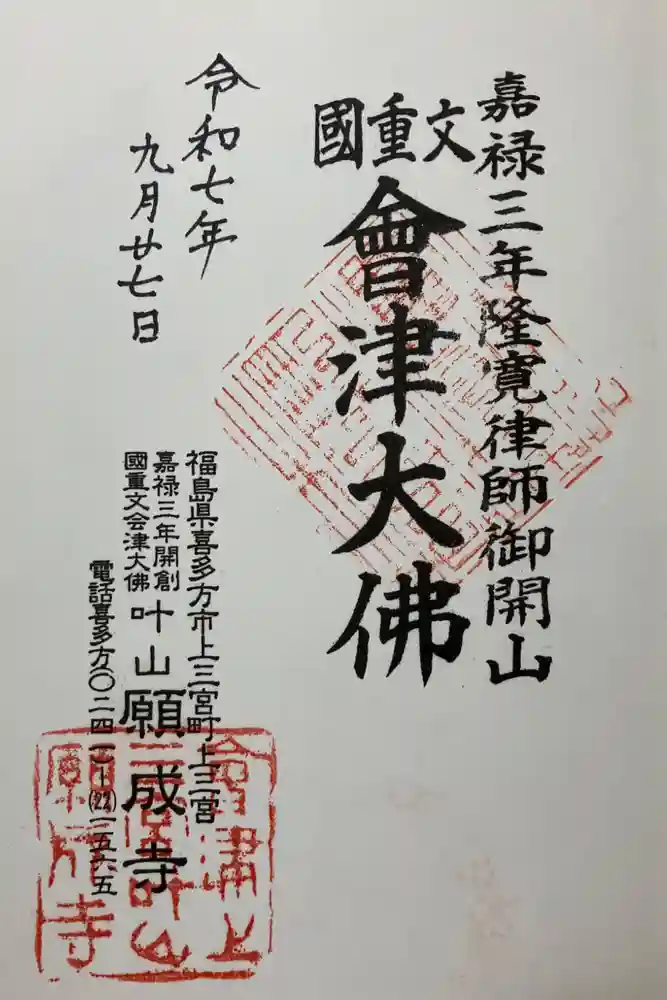 嘉禄三年隆寛律師御開山
國重文
會津大佛
令和七年
九月廿七日
福島県喜多方市上三宮町上三宮
嘉禄三年開創
國重文会津大佛
叶山願成寺
電話喜多方(〇二四一)-(22)二五六五
會津上
三宮叶山
願成寺